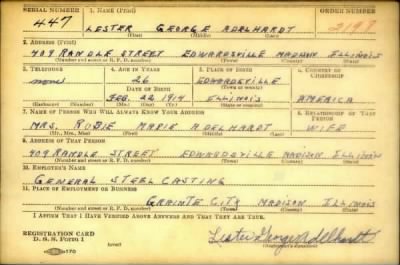 SERIAL NUMBER 1. NAME (Print) ORDER NUMBER
447 LESTER GEORGE ADELHARDT 2197
(First) (Middle) (Last)
2. ADDRESS (Print)
409 RANDLE STREET EDWARDSVILLE MADISON ILLINOIS
(Number and street or R. F. D. number) (Town) (County) (State)
3. TELEPHONE 4. AGE IN YEARS 5. PLACE OF BIRTH 6. COUNTRY OF CITIZENSHIP
none 26 EDWARDSVILLE
DATE OF BIRTH (Town or county)
FEB. 22 1914 ILLINOIS AMERICA
(Exchange) (Number) (Mo.) (Day) (Yr.) (State or country)
7. NAME OF PERSON WHO WILL ALWAYS KNOW YOUR ADDRESS 8. RELATIONSHIP OF THAT PERSON
MRS. MARIE ADELHARDT WIFE
(Mr., Mrs., Miss) (First) (Middle) (Last)
9. ADDRESS OF THAT PERSON
409 RANDLE STREET EDWARDSVILLE MADISON ILLINOIS
(Number and street or R. F. D. number) (Town) (County) (State)
10. EMPLOYER'S NAME
GENERAL STEEL CASTING
11. PLACE OF EMPLOYMENT OR BUSINESS
GRAINTE CITY MADISON ILLINOIS
(Number and street or R. F. D. number) (Town) (County) (State)
I AFFIRM THAT I HAVE VERIFIED ABOVE ANSWERS AND THAT THEY ARE TRUE.
REGISTRATION CARD
D. S. S. FORM 1 (over) Lester George Adelhardt
(Registrant's signature)